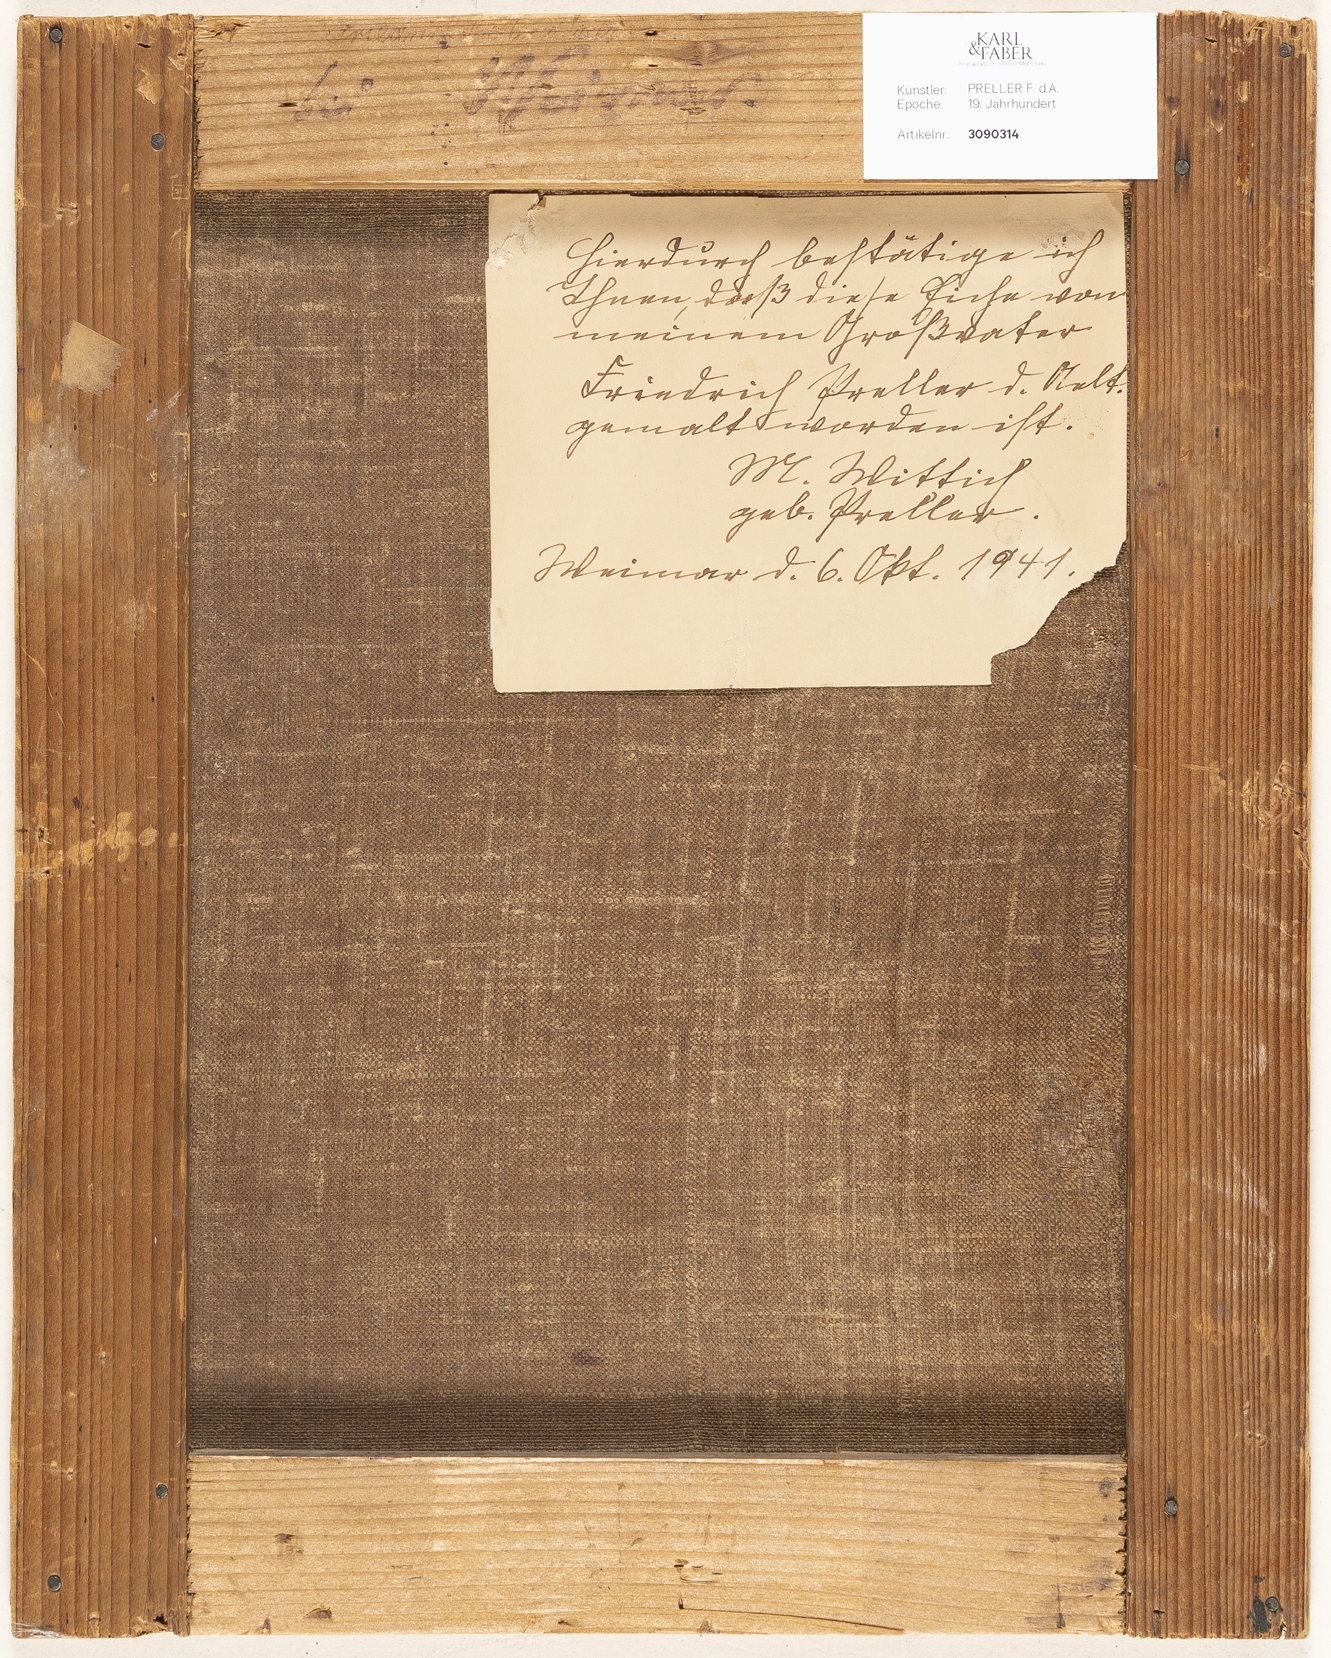 bei Weimar.
KARL
& FABER
Künstler: PRELLER F. d.A.
Epoche: 19. Jahrhundert
Artikelnr.: 3090314
Hierdurch bestätige ich
Ihnen, daß diese Eiche von
meinem Großvater
Friedrich Preller d. Aelt.
gemalt worden ist.
M. Wittich
geb. Preller.
Weimar d. 6. Okt. 1941.